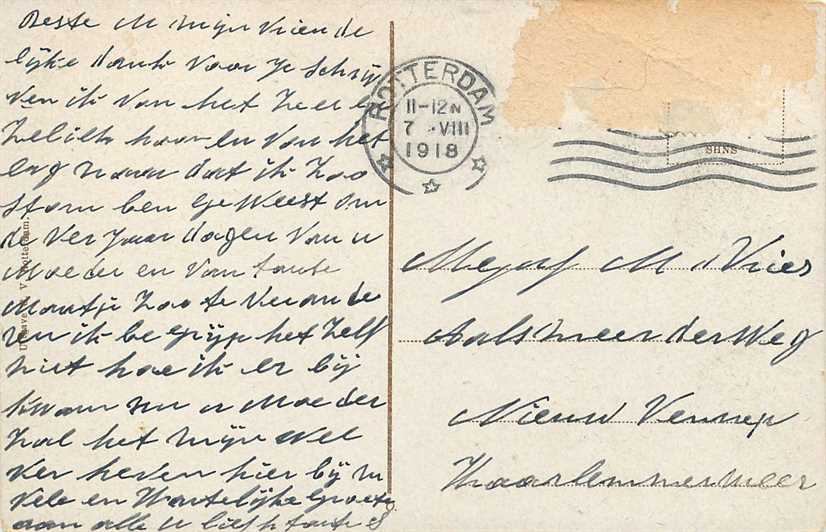 Beste M mijn vriende
lijke dank voor je schrij
ven ik van het zeer
hooren van het
maar dat ik zoo
stom ben geweest om
de verjaardagen van u
Moeder en van tante
Maatje zoo te verande
ren ik begrijp het zelf
niet hoe ik er bij
kwam nu u Moeder
zal het mijn wel
ver heven hier bij nu
vele en Hartelijke groete
aan alle u liefh tante
Uitgave v. V Rotterdam.
ROTTERDAM
11-12N
7 VIII
1918
SHNS
Mejuf M. d Vries
Aalsmeerderweg
Nieuw Vennep
Haarlemmermeer